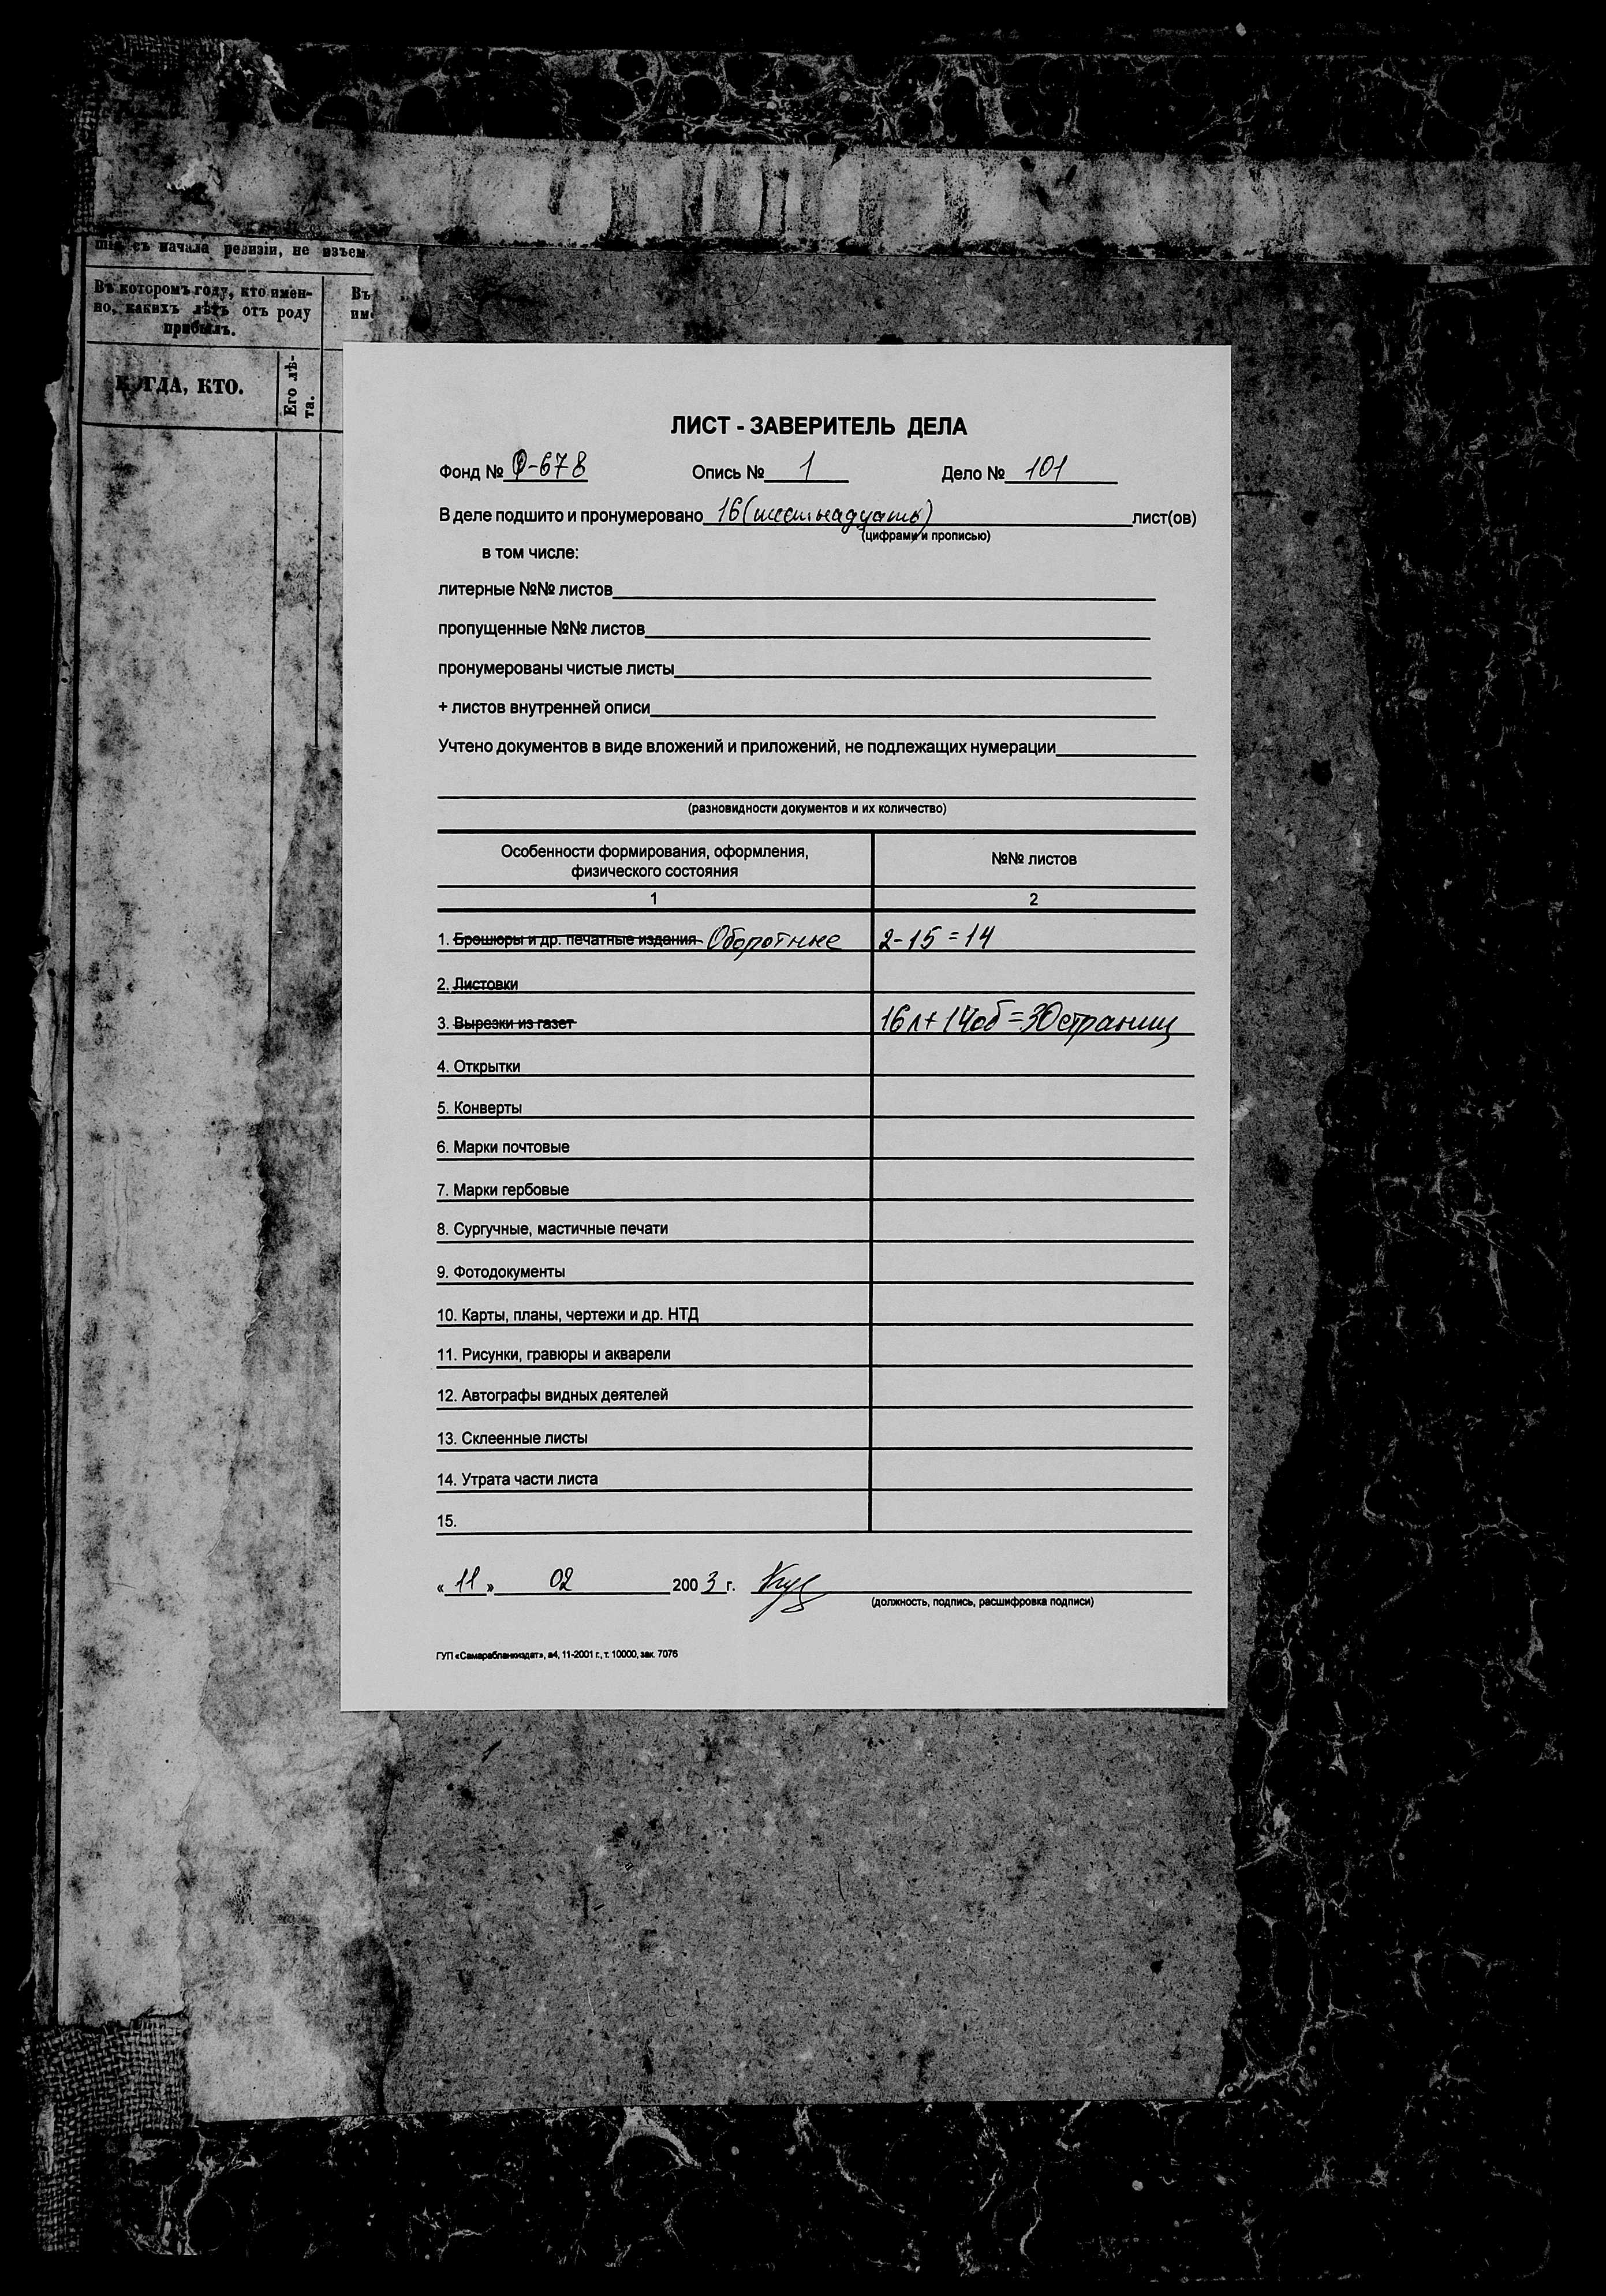 съ начала ревизіи, не взъем
Въ которомъ году, кто имен-
но, какихъ лѣтъ отъ роду
прибылъ.
Въ
КОГДА, КТО.
Его лѣ-
та.
ЛИСТ - ЗАВЕРИТЕЛЬ ДЕЛА
Фонд № Ф-678 Опись № 1 Дело № 101
В деле подшито и пронумеровано 16 (шестнадцать) лист(ов)
(цифрами и прописью)
в том числе:
литерные №№ листов
пропущенные №№ листов
пронумерованы чистые листы
+ листов внутренней описи
Учтено документов в виде вложений и приложений, не подлежащих нумерации
(разновидности документов и их количество)
Особенности формирования, оформления,
физического состояния
№№ листов
1 2
1. Брошюры и др. печатные издания Оборотные 2-15=14
2. Листовки
3. Вырезки из газет 16л+14об=30страниц
4. Открытки
5. Конверты
6. Марки почтовые
7. Марки гербовые
8. Сургучные, мастичные печати
9. Фотодокументы
10. Карты, планы, чертежи и др. НТД
11. Рисунки, гравюры и акварели
12. Автографы видных деятелей
13. Склеенные листы
14. Утрата части листа
15.
« 11 » 02 2003 г.
(должность, подпись, расшифровка подписи)
ГУП «Самарабланкиздат», а4, 11-2001 г., т. 10000, зак. 7076